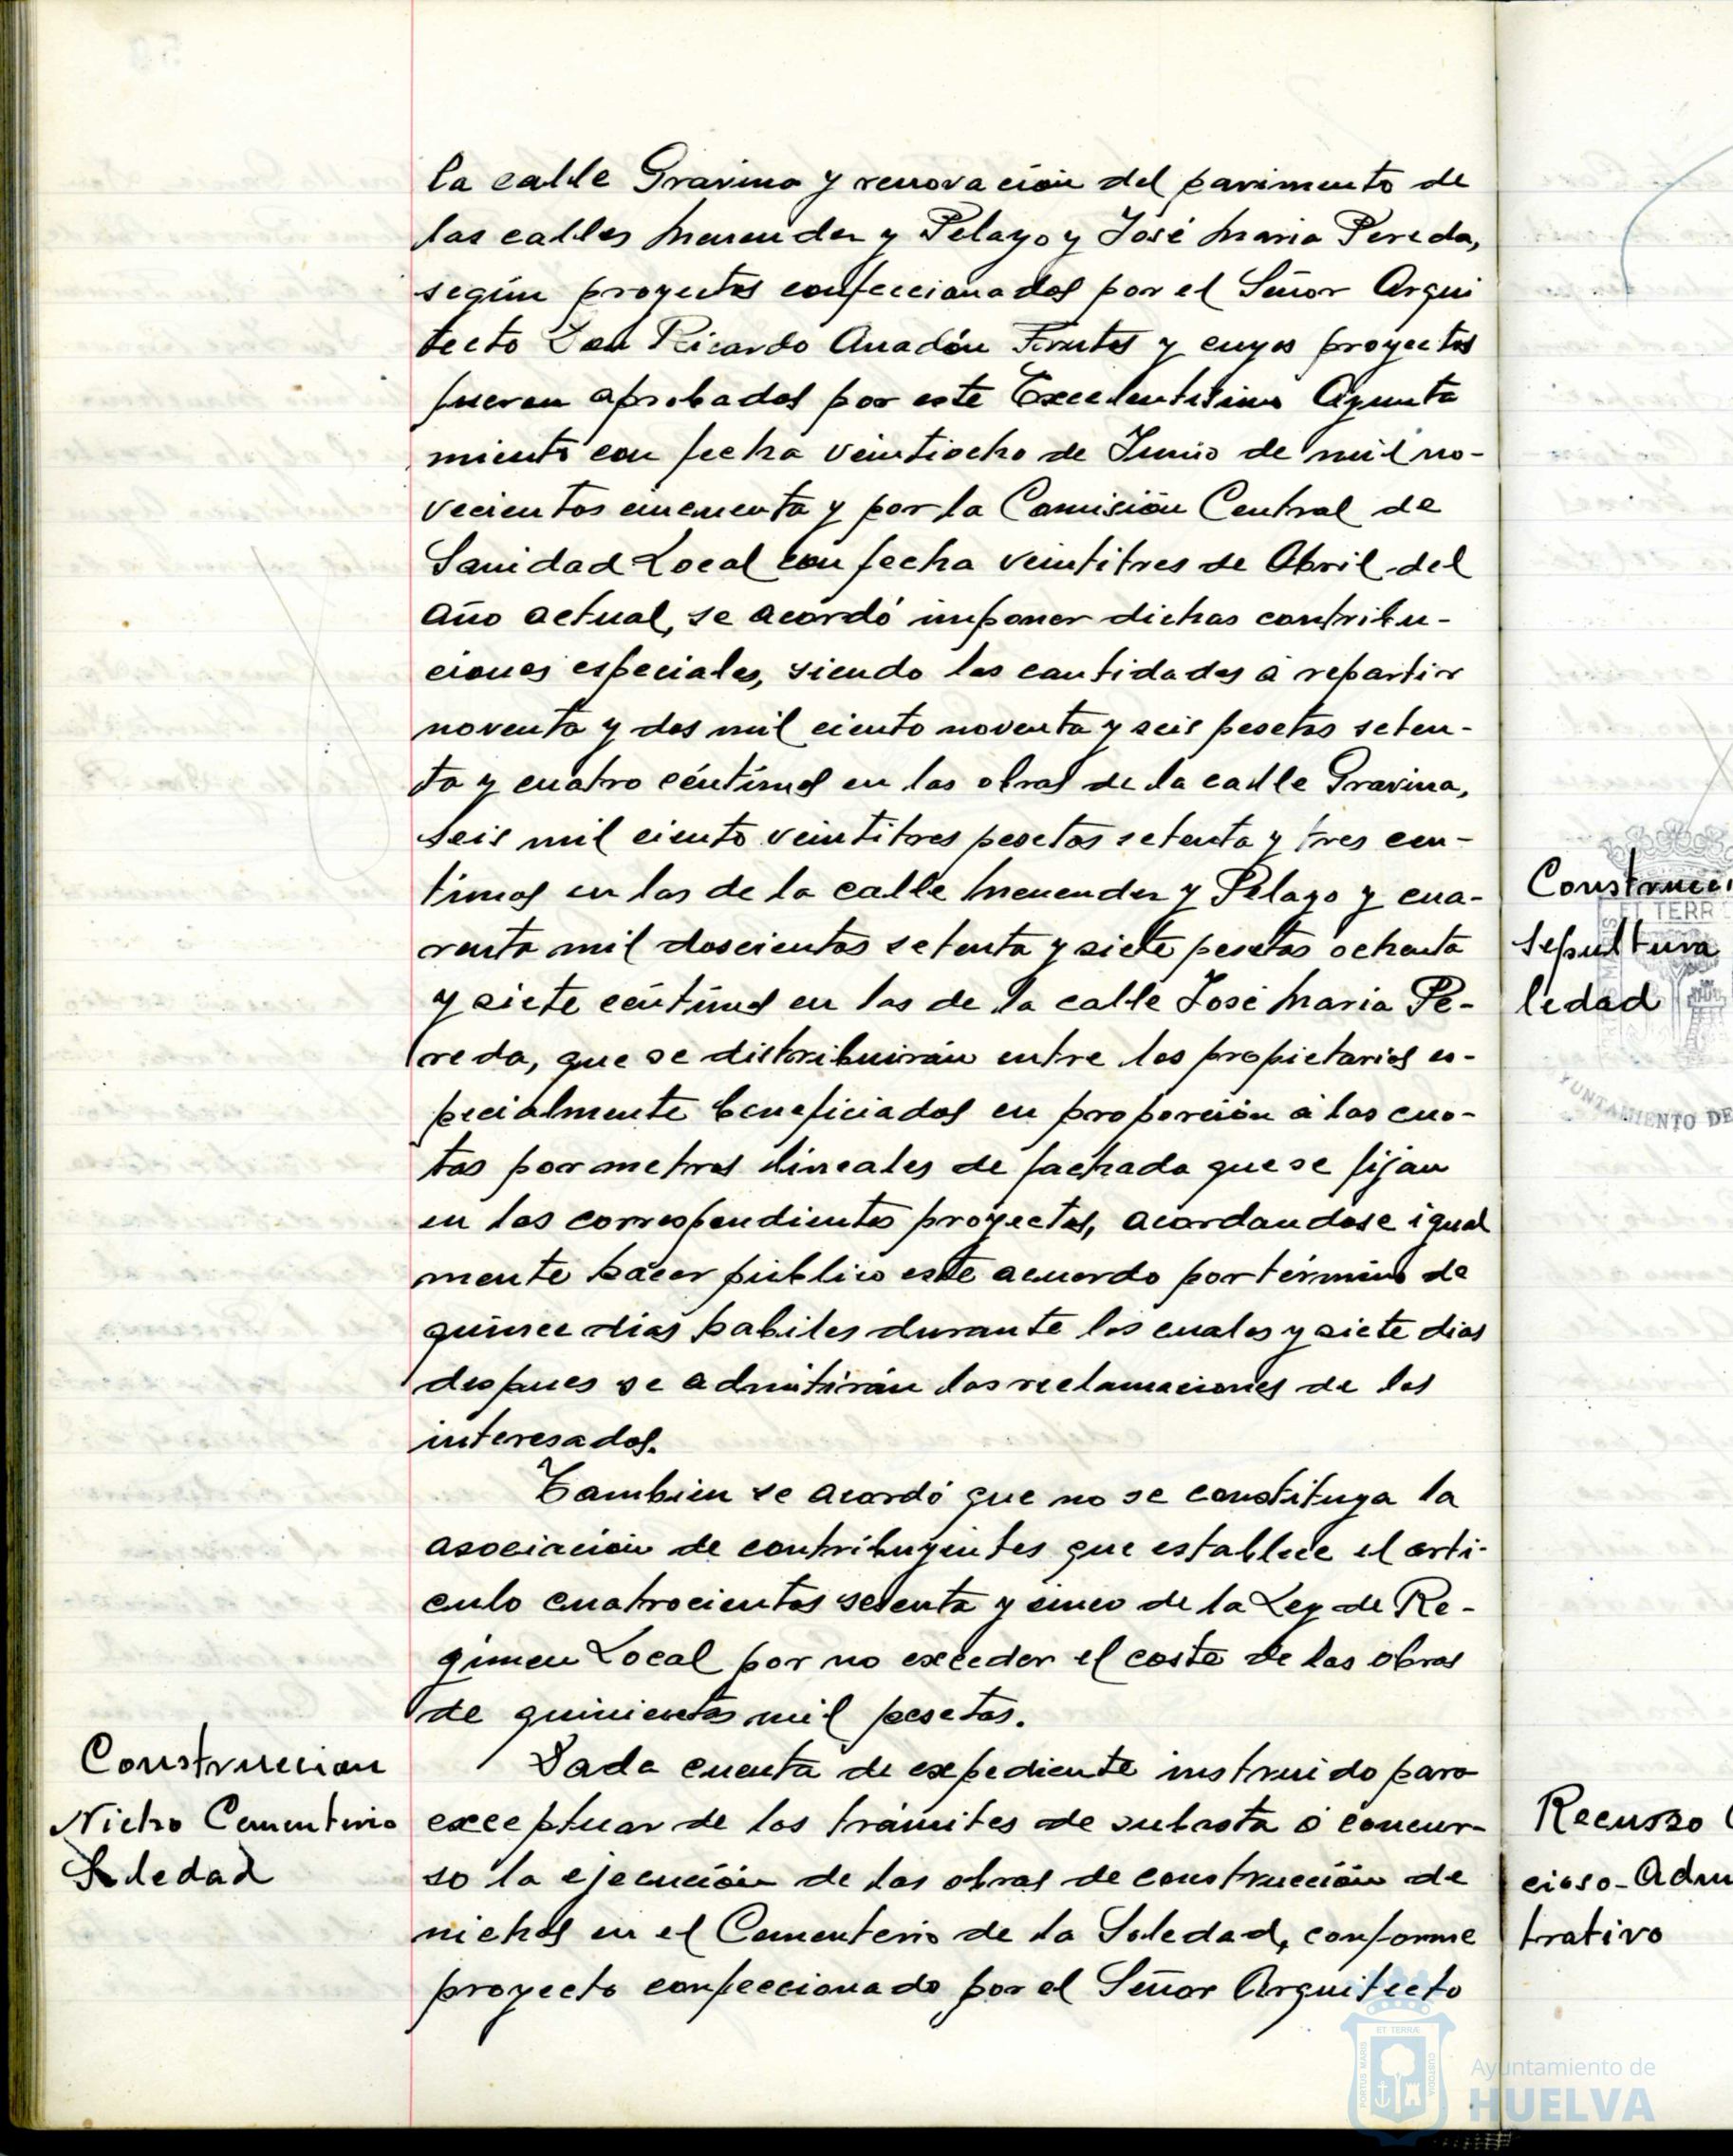 la calle Gravina y renovación del pavimento de
las calles Menendez y Pelayo y José Maria Pereda,
según proyectos confeccionados por el Señor Arqui
tecto Don Ricardo Anadón Frutos y cuyos proyectos
fueron aprobados por este Excelentisimo Ayunta
miento con fecha veintiocho de Junio de mil no-
vecientos cincuenta y por la Comisión Central de
Sanidad Local con fecha veintitres de Abril del
año actual, se acordó imponer dichas contribu-
ciones especiales, siendo las cantidades á repartir
noventa y dos mil ciento noventa y seis pesetas seten-
ta y cuatro céntimos en las obras de la calle Gravina,
seis mil ciento veintitres pesetas setenta y tres cen-
timos en las de la calle Menendez y Pelayo y cua-
renta mil doscientas setenta y siete pesetas ochenta
y siete céntimos en las de la calle José Maria Pe-
reda, que se distribuirán entre los propietarios es-
pecialmente beneficiados en proporción á las cuo-
tas por metros lineales de fachada que se fijan
en los correspondientes proyectos, acordandose igual
mente hacer público este acuerdo por término de
quince dias habiles durante los cuales y siete dias
despues se admitirán las reclamaciones de los
interesados.
Tambien se acordó que no se constituya la
asociación de contribuyentes que establece el arti-
culo cuatrocientos setenta y cinco de la Ley de Re-
gimen Local por no exceder el coste de las obras
de quinientas mil pesetas.
Construccion
Nicho Cementerio
Soledad
Dada cuenta de expediente instruido para
exceptuar de los trámites de subasta ó concur-
so la ejecución de las obras de construcción de
nichos en el Cementerio de la Soledad, conforme
proyecto confeccionado por el Señor Arquitecto
Construcci
Sepultura
ledad
ET TERR
YUNTAMIENTO DE
Recurso
cioso-Adm
trativo
PORTUS MARIS
ET TERRÆ
CUSTODIA
Ayuntamiento de
HUELVA